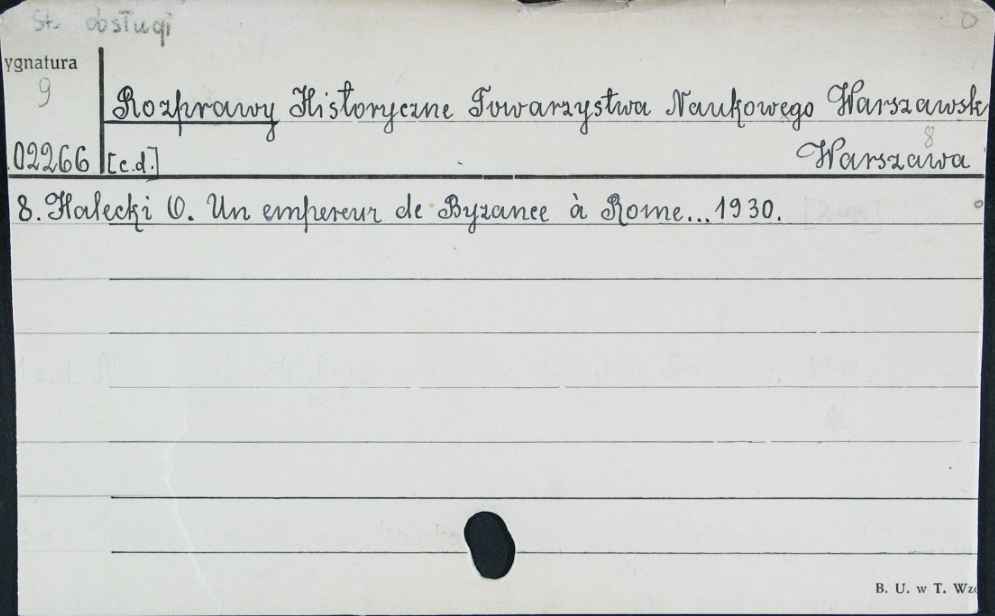 St. obsługi
ygnatura
9
Rozprawy Historyczne Towarzystwa Naukowego Warszawsk
8
02266 [c.d.] Warszawa
8. Halecki O. Un empereur de Byzance à Rome... 1930.
B. U. w T. Wz